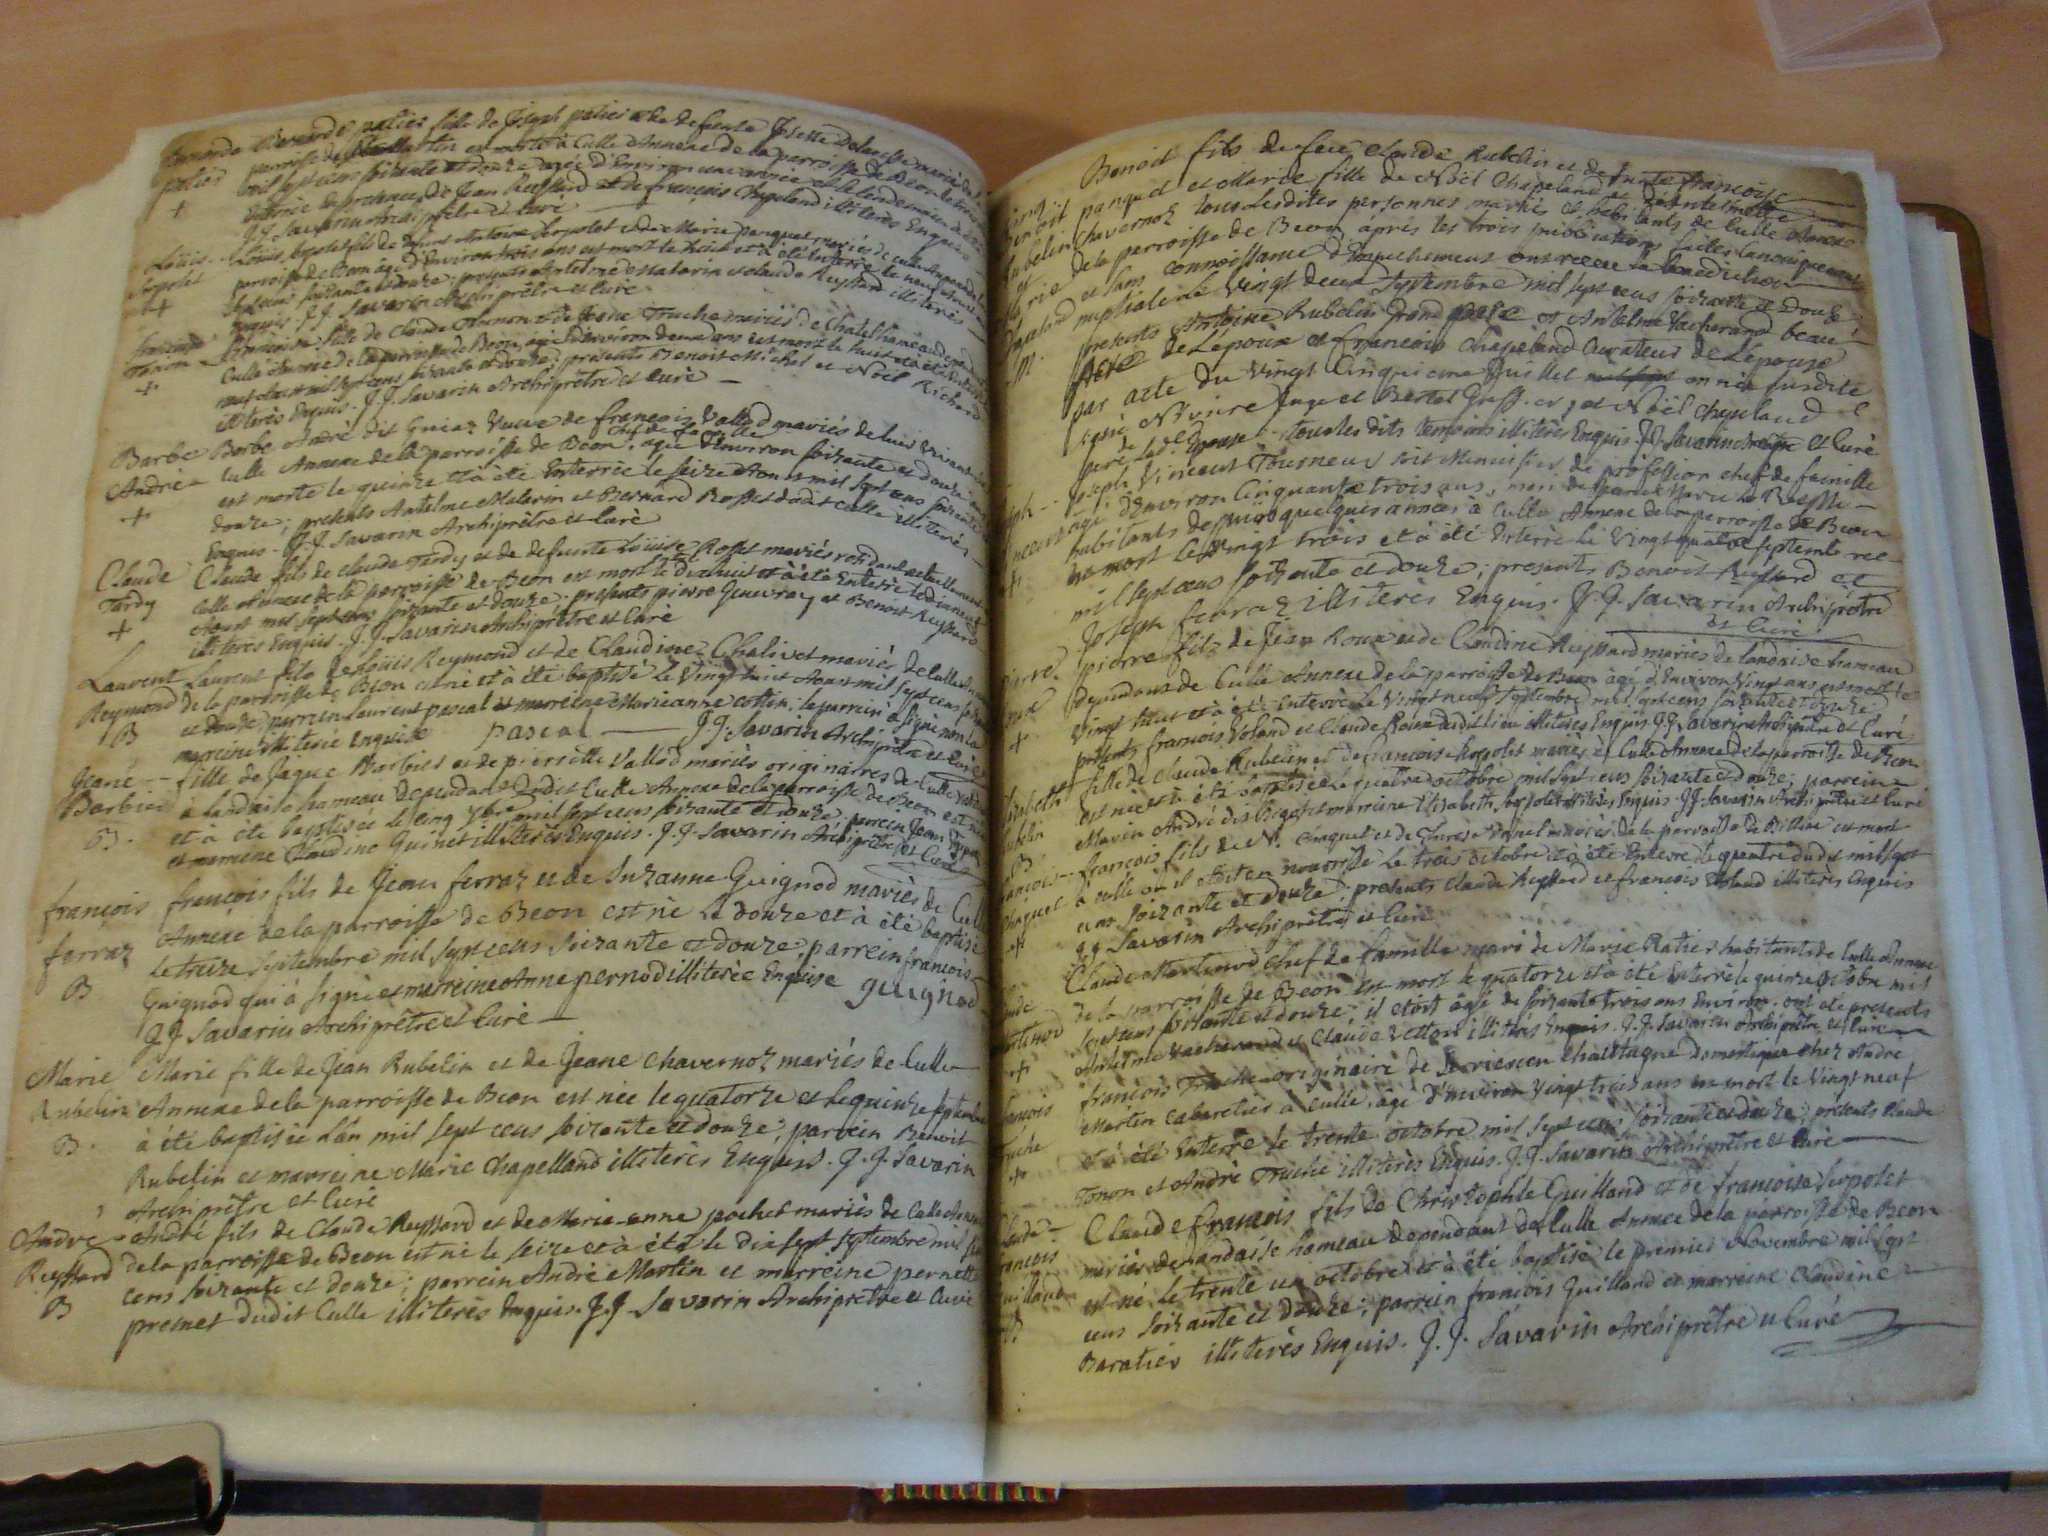 Bernarde palier fille de Joseph palier et de defunte Josette
parroisse de est morte à Culle Annexe de la parroisse de Beon le
palier mil sept cens soixante et douze agée d'Environ une année
Enterrée presences de Jean Reyssard et de françois Chapeland illiterés Enquis
+ J. J. Savarin Archiprêtre et Curé
Louis Louis serpolet fils de defunt Antoine serpolet et de Marie panquet mariés de Culle Annexe de la
Serpolet parroisse de Beon âgé d'Environ trois ans est mort le huit et à été Enterré le neuf
+ sept cens soixante et douze. presents Antelme Malarin et claude Reyssard illiterés
Enquis. J. J. Savarin Archiprêtre et Curé
françoise françoise fille de Claude et de Truche mariés de
Culle Annexe de la parroisse de Beon, agée d'environ deux ans est mort le huit et à été
+ mil sept cens soixante et douze: presents Benoit Michel et Noël Richard
illiterés Enquis. J. J. Savarin Archiprêtre et Curé
Barbe Barbe André dit Guiaz Veuve de françois Vallod mariés de leur vivant
chef de famille
André Culle Annexe de la parroisse de Beon; agée d'Environ soixante et douze
est morte le quinze et à été Enterrée le seize Aout mil sept cens soixante
+ douze; presents Antelme Malarin et Bernard Rosset dudit Culle illiterés
Enquis. J. J. Savarin Archiprêtre et Curé
Claude Claude fils de claude Tardy et de defunte Loüise Rosset mariés residant actuellement
Tardy Culle Annexe de la parroisse de Beon est mort le dixhuit et à été Enterré le dixneuf
+ Aout mil sept cens soixante et douze. presents pierre Genevray et Benoit Reyssard
illiterés Enquis. J. J. Savarin Archiprêtre et Curé
Laurent Laurent fils de Loüis Reymond et de Claudine Chalivet mariés de Culle
Reymond de la parroisse de Beon est né et à été baptisé le Vingt huit Aout mil sept cens
B et douze parrein Laurent pascal et marreine Marieanne Cottin; le parrein à signé non la
marreine illiterée Enquise pascal J. J. Savarin Archiprêtre et Curé
Jeane fille de Jaque Barbier et de pierrette Vallod mariés originaires de Culle
Barbier à Landaise hameau dependant dudit Culle Annexe de la parroisse de Beon est née
B. et à été baptisée le cinq 7bre mil sept cens soixante et douze; parrein Jean
et marreine Claudine Guinet illiterés Enquis. J. J. Savarin Archiprêtre et Curé
françois françois fils de Jean ferraz et de Suzanne Guignod mariés de Culle
ferraz Annexe de la parroisse de Beon est né le douze et à été baptisé
B le treize Septembre mil sept cens soixante et douze; parrein françois
Guignod qui à signé et marreine Anne pernod illiterée Enquise guignod
J. J. Savarin Archiprêtre et Curé
Marie Marie fille de Jean Rubelin et de Jeane Chavernoz mariés de Culle
Rubelin Annexe de la parroisse de Beon est née le quatorze et le quinze septembre
B. à été baptisée l'an mil sept cens soixante et douze; parrein Benoit
Rubelin et marreine Marie Chapelland illiterés Enquis. J. J. Savarin
Archiprêtre et Curé
André André fils de Claude Reyssard et de Marie-anne pochet mariés de Culle Annexe
Reyssard de la parroisse de Beon est né le seize et à été le dix sept septembre mil sept
B cens soixante et douze; parrein André Martin et marreine pernette
premet dudit Culle illiterés Enquis. J. J. Savarin Archiprêtre et Curé
Benoit fils de feu Claude Rubelin et de françoise
Benoit panquet et Marie fille de Noël Chapeland et
Rubelin Chavernoz tous lesdites personnes mariés et habitants de Culle Annexe
et de la parroisse de Beon après les trois publications faites Canoniquement
Marie et sans connoissance d'Empechement ont reçu la benediction
Chapeland nuptiale le Vingt deux Septembre mil sept cens soixante et douze
M. presents Antoine Rubelin grand pere et Antelme Vacherand beau
frere de L'epoux et françois Chapeland Curateur de L'epouse
par acte du Vingt Cinquieme Juillet année susdite
signé Niviere Juge et Bertet Greff.er, et Noël Chapeland
pere de lad.e Epouse tous lesdits temoins illiterés Enquis. J. J. Savarin Archiprêtre et Curé
Joseph Joseph Vincent Tourneur soit Menuisier de profession chef de famille
Vincent âgé d'Environ Cinquante trois ans, mari de
habitants depuis quelques années à Culle Annexe de la parroisse de Beon
+ est mort le Vingt trois et à été Enterré le Vingt quatre septembre
mil sept cens soixante et douze; presents Benoit Reyssard et
Joseph ferraz illiterés Enquis. J. J. Savarin Archiprêtre
et Curé
pierre pierre fils de Jean Roux et de Claudine Reyssard mariés de landaise hameau
Roux dependant de Culle Annexe de la parroisse de Beon âgé d'Environ Vingt ans est mort le
+ Vingt huit et à été enterré le Vingt neuf septembre mil sept cens soixante et douze
presents françois Voland et Claude Roux dudit lieu illiterés Enquis J. J. Savarin Archiprêtre et Curé
Elizabeth fille de Claude Rubelin et de françoise serpolet mariés à Culle Annexe de la parroisse de Beon
Rubelin est née et à été baptisée le quatre octobre mil sept cens soixante et douze; parrein
B Mavin André dit Biguet et marreine Elisabeth serpolet illiterés Enquis. J. J. Savarin Archiprêtre et Curé
françois françois fils de N. Chaquet et de mariés de la parroisse de Billieu est mort
Chaquet à Culle où il étoit en nourrisse le trois octobre et à été Enterré le quatre dudit mil sept
+ cens soixante et douze; presents Claude Reyssard et françois Voland illiterés Enquis
J J Savarin Archiprêtre et Curé
Claude Claude Martinod chef de famille mari de Marie Ratier habitants de Culle Annexe
Martinod de la parroisse de Beon est mort le quatorze et à été Enterré le quinze octobre mil
+ sept cens soixante et douze; il etoit âgé de soixante trois ans Environ. ont été presents
Antelme Vacherand et Claude Vetton illiterés Enquis. J. J. Savarin Archiprêtre et Curé
françois françois Truche originaire de en Chautagne domestique chez André
Truche Martin cabaretier à Culle. âgé d'Environ Vingt trois ans est mort le Vingt neuf
+ et à été Enterré le trente octobre mil sept cens soixante et douze; presents Claude
Tonon et André Truche illiterés Enquis. J. J. Savarin Archiprêtre et Curé
Claude Claude françois fils de Christophle Guilland et de françoise Serpolet
françois mariés de Landaise hameau dependant de Culle Annexe de la parroisse de Beon
Guilland est né le trente un octobre et à été baptisé le premier Novembre mil sept
B cens soixante et douze; parrein françois Guilland et marreine Claudine
Baratier illiterés Enquis. J. J. Savarin Archiprêtre et Curé